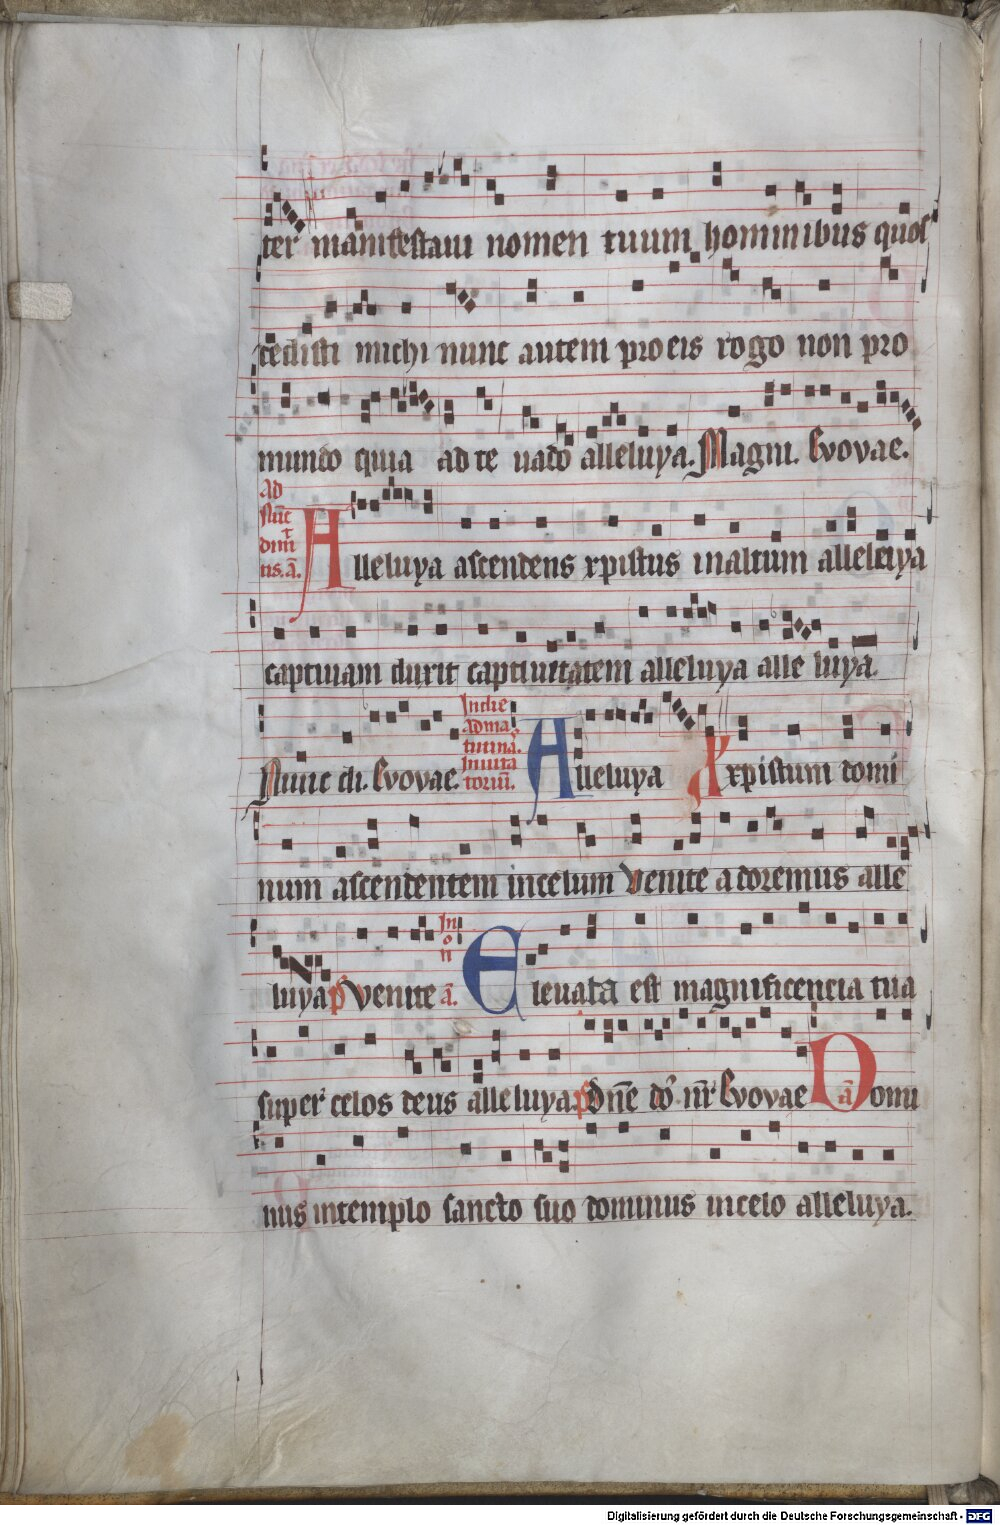 ter manifestaui nomen tuum hominibus quos
dedisti michi nunc autem pro eis rogo non pro
mundo quia ad te uado alleluya. Magni. Evovae.
Ad
Nūc
dimt
tis. ā.
Alleluya ascendens xpistus in altum alleluya
captiuam duxit captiuitatem alleluya alle luya.
Nunc di. Evovae.
In die
ad ma
tutinā.
Inuita
toriū.
Alleluya Xxpistum domi
num ascendentem in celum Venite adoremus alle
luya p̄ venite
In
o
n
ā.
Eleuata est magnificencia tua
super celos deus alleluya. p̄s dn̄e do' nr̄ Evovae ā Domi
nus in templo sancto suo dominus in celo alleluya.
Digitalisierung gefördert durch die Deutsche Forschungsgemeinschaft - DFG